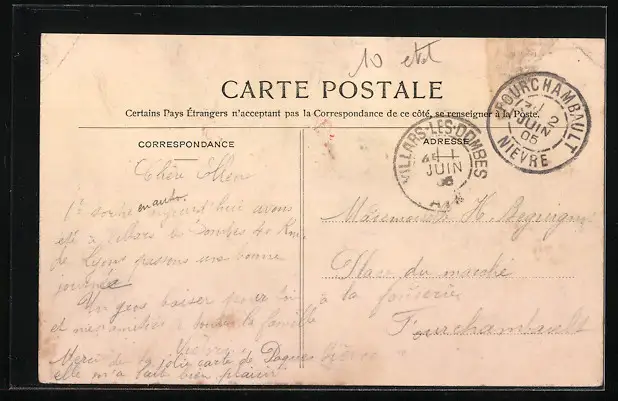 10
CARTE POSTALE
Certains Pays Étrangers n'acceptent pas la Correspondance de ce côté, se renseigner à la Poste.
CORRESPONDANCE
ADRESSE
FOURCHAMBAULT
JUIN
05
NIÈVRE
VILLARS-LES-DOMBES
JUIN
05
AIN
Chère
1re sortie en auto. aujourd'hui avons
été à Villars les Dombes
de Lyon passons une bonne
journée
Un gros baiser pour toi
et mes amitiés à toute la famille
Merci de ta jolie carte de Pâques
elle m'a fait bien plaisir
Mademoiselle H.
Place du marché
à la
Fourchambault
Nièvre